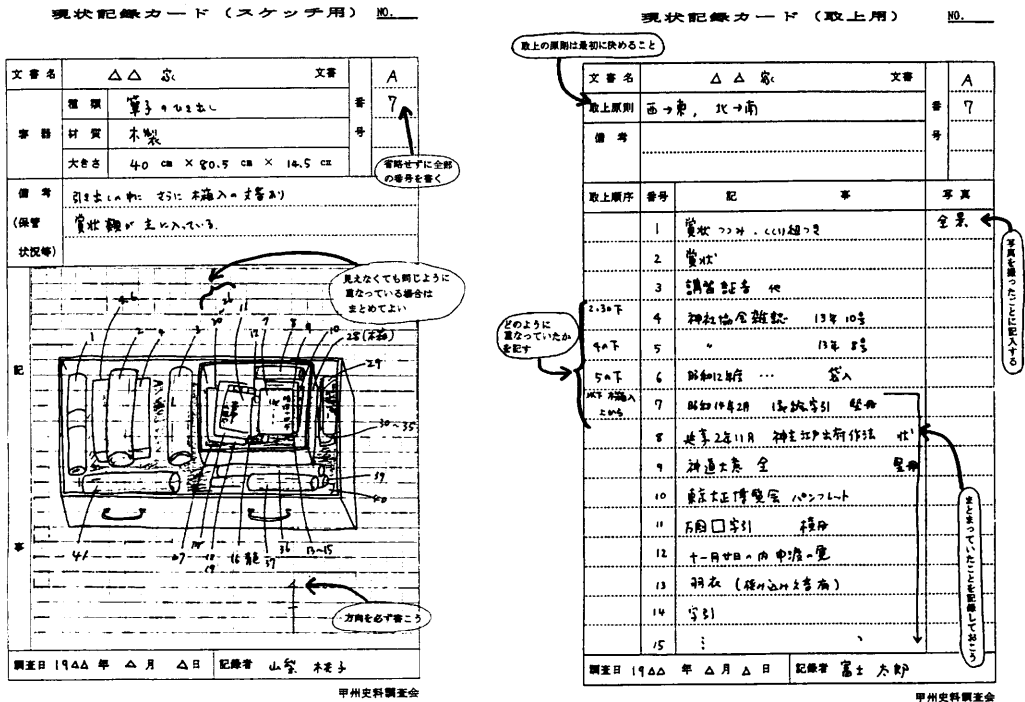 現状記録カード（スケッチ用） NO.
文書名 △△家 文書
番号 A
7
容器
種類 箪子のひき出し
材質 木製
大きさ 40 cm × 80.5 cm × 14.5 cm
省略せずに全部
の番号を書く
備考
(保管
状況等)
引き出しの中に さらに木箱入の文書あり
賞状額が主に入っている。
見えなくても同じように
重なっている場合は
まとめてよい
記事
1
2
4
3
11
12
7
8
9
10
28(木箱)
29
30~35
39
40
41
27
18
19
16
37
36
13~15
方向を必ず書こう
調査日 19△△ 年 △ 月 △ 日 記録者 山梨 桃子
甲州史料調査会
現状記録カード（取上用） NO.
取上の原則は最初に決めること
文書名 △△家 文書
番号 A
7
取上原則 西→東, 北→南
備考
取上順序 番号 記事 写真
1 賞状 つつみ、くくり紐つき 全景
2 賞状
3 講習証書 他
2.3の下 4 神社協会雑誌 13年10号
4の下 5 〃 13年8号
5の下 6 昭和12年度 … 袋入
以下木箱入
上から
7 昭和14年2月 字引 竪冊
8 延享2年11月 神主江戸出府作法 状
9 神道大意 全 竪冊
10 東京大正博覧会 パンフレット
11 万国□字引 横冊
12 十一月廿日の内申渡の覚
13 羽衣 (積み込み文書有)
14 字引
15 ⋮
どのように
重なっていたか
を記す
写真を撮ったことに記入する
まとまっていたことを記録しておこう
調査日 19△△ 年 △ 月 △ 日 記録者 富士 太郎
甲州史料調査会